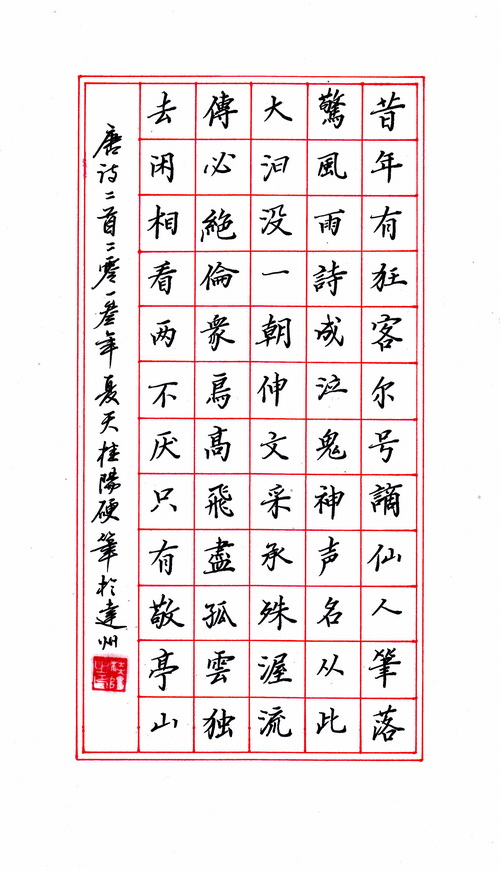 昔年有狂客尔号謫仙人筆落
驚風雨詩成泣鬼神声名从此
大汩没一朝伸文采承殊渥流
傳必絶倫衆鳥高飛盡孤雲独
去闲相看两不厌只有敬亭山
唐诗二首二零一叁年夏天桂陽硬筆於達州